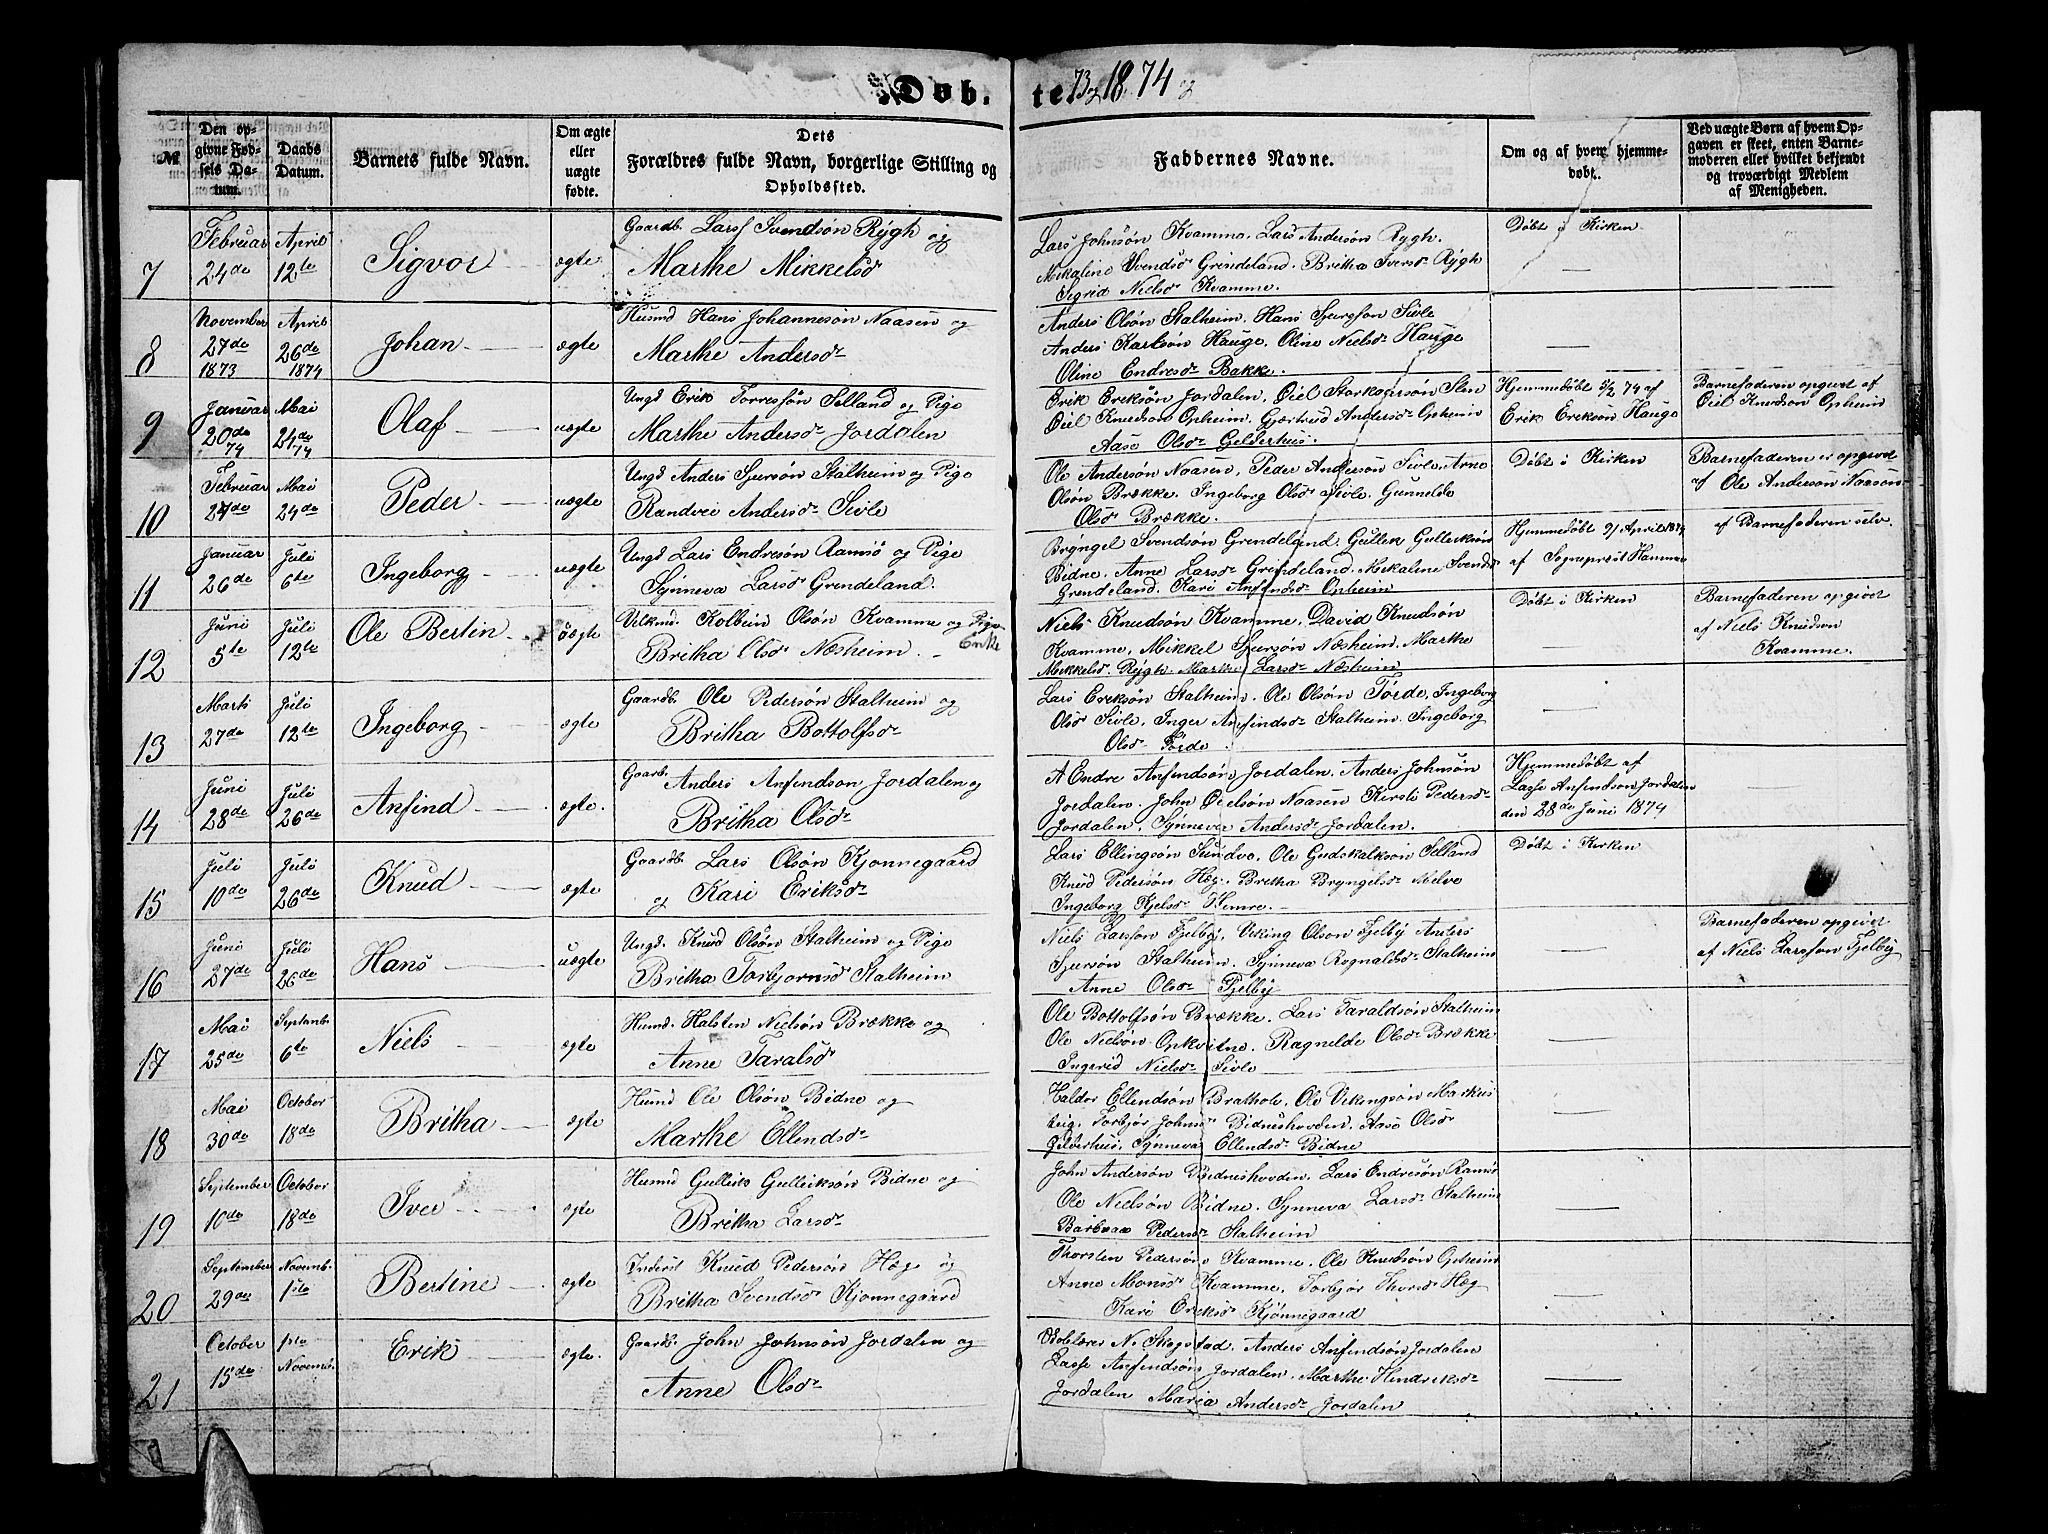 Døb-
te 73 og 1874
№
Den op-
givne Fød-
sels Da-
tum.
Daabs
Datum.
Barnets fulde Navn.
Om ægte
eller
uægte
fødte.
Dets
Forældres fulde Navn, borgerlige Stilling og
Opholdssted.
Faddernes Navne.
Om og af hvem hjemme-
døbt.
Ved uægte Børn af hvem Op-
gaven er skeet, enten Barne-
moderen eller hvilket bekjendt
og troværdigt Medlem
af Menigheden.
7
Februar
24de
April
12te
Sigvor
ægte
Gaardb. Lars Svendsøn Rygh og
Marthe Mikkelsdr
Lars Johnsøn Kvamme, Lars Andersøn Rygh.
Mikaline Svendsdr Grendeland. Britha Iversdr Rygh
Sigrid Nielsdr Kvamme.
Døbt i Kirken
8
November
27de
1873
April
26de
1874
Johan
ægte
Husmd Hans Johannesøn Naasen og
Marthe Andersdr
Anders Olsøn Stalheim, Hans Sjursson Sivle
Anders Karlsøn Hauge, Oline Nielsdr Hauge
Oline Endresdr Bakke.
9
Januar
20de
74
Mai
24de
74
Olaf
uægte
Ungd Erik Torressøn Selland og Pige
Marthe Andersdr Jordalen
Erik Eriksøn Jordalen, Øiel Storkorsøn Slen
Øiel Knudsøn Opheim, Gjertrud Andersdr Opheim
Aase Olsdr Gelderhus.
Hjemmedøbt 5/2 74 af
Erik Erikson Hauge
Barnefaderen opgivet af
Øiel Knudson Opheim
10
Februar
24de
Mai
24de
Peder
uægte
Ungd Anders Sjursøn Stalheim og Pige
Randvei Andersdr Sivle
Ole Andersøn Naasen, Peder Andersøn Sivle, Arne
Olsøn Brække. Ingeborg Olsdr Sivle. Gunnelde
Olsdr Brække.
Døbt i Kirken
Barnefaderen er opgivet
af Ole Anderson Naasen
11
Januar
26de
Juli
6te
Ingeborg
uægte
Ungd Lars Endresøn Ramsø og Pige
Synneva Larsdr Grendeland.
Bryngel Svendsøn Grendeland. Gullek Gulleiksøn
Bidne. Anne Larsdr Grendeland. Mikaline Svendsdr
Grendeland. Kari Anfindsdr Opheim
Hjemmedøbt 9/ April 1874
af Sogneprest Hamme
af Barnefaderen selv.
12
Juni
5te
Juli
12te
Ole Bertin
uægte
Ungkmd. Kolbein Olsøn Kvamme og Pige
Enke
Britha Olsdr Næsheim.
Niels Knudsøn Kvamme, David Knudsøn
Kvamme, Mikkel Sjursøn Næsheim. Marthe
Mikkelsdr Rygh. Marthe Larsdr Næsheim
Døbt i Kirken
Barnefaderen opgivet
af Niels Knudson
Kvamme.
13
Marts
27de
Juli
12te
Ingeborg
ægte
Gaardb. Ole Pedersøn Stalheim og
Britha Bottolfsdr
Lars Eriksøn Stalheim. Ole Olsøn Førde, Ingeborg
Olsdr Sivle, Inger Anfindsdr Stalheim. Ingeborg
Olsdr Førde
14
Juni
28de
Juli
26de
Anfind
ægte.
Gaardb. Anders Anfindson Jordalen og
Britha Olsdr
Endre Anfindsøn Jordalen, Anders Johnsøn
Jordalen. John Øielsøn Naasen Kirsti Pedersdr
Jordalen, Synneva Andersdr Jordalen.
Hjemmedøbt af
Lasse Anfindson Jordalen
den 28de Juni 1874
15
Juli
10de
Juli
26de
Knud
ægte
Gaardb. Lars Olsøn Kjønnegaard
og Kari Eriksdr
Lars Ellingsøn Sundve, Ole Gudskalksøn Selland
Knud Pedersøn Hæg. Britha Bryngelsdr Melve
Ingeborg Kjelsdr Hemre.
Døbt i Kirken
16
Juni
27de
Juli
26de
Hans
uægte
Ungd. Knud Olsøn Stalheim og Pige
Britha Torbjornsdr Stalheim
Niels Larsson Fjelby, Viking Olson Fjelby Anders
Sjursøn Stalheim. Synneva Rognaldsdr Stalheim
Anne Olsdr Fjelby
Barnefaderen opgivet
af Niels Larsson Fjelby
17
Mai
25de
Septemb.
6te
Niels
ægte
Husmd. Halsten Nielsøn Brække og
Anne Taralsdr
Ole Bottolfsøn Brække. Lars Taraldsøn Stalheim
Ole Nielsøn Opkvitne. Ragnelde Olsdr Brække
Ingerid Nielsdr Sivle
18
Mai
30de
October
18de
Britha
ægte
Husmd Ole Olsøn Bidne og
Marthe Ellendsdr
Haldor Ellendsøn Brathole, Ole Vikingsøn Markus
teig, Torbjør Johnsdr Bidneshovden. Aase Olsdr
Gilderhus. Synneva Ellendsdr Bidne
19
September
10de
October
18de
Iver
ægte
Husmd Gulleik Gulleiksøn Bidne og
Britha Larsdr
John Andersøn Bidneshovden. Lars Endresøn Ramsø
Ole Nielsøn Bidne. Synneva Larsdr Stalheim
Barbraa Pedersdr Stalheim
20
September
29de
Novemb.
1ste
Bertine
ægte
Inderst Knud Pedersøn Hæg og
Britha Svendsdr Kjønnegaard
Thorsten Pedersøn Kvamme. Ole Knudsøn Opheim
Anne Monsdr Kvamme, Torbjør Thorsdr Hæg
Kari Eriksdr Kjønnegaard
21
October
15de
1ste
Novemb.
Erik
ægte.
Gaardb. John Johnsøn Jordalen og
Anne Olsdr
Skolelærer N. Skogstad. Anders Anfindsøn Jordalen
Lasse Anfindsøn Jordalen. Marthe Hendriksdr
Jordalen Maria Andersdr Jordalen